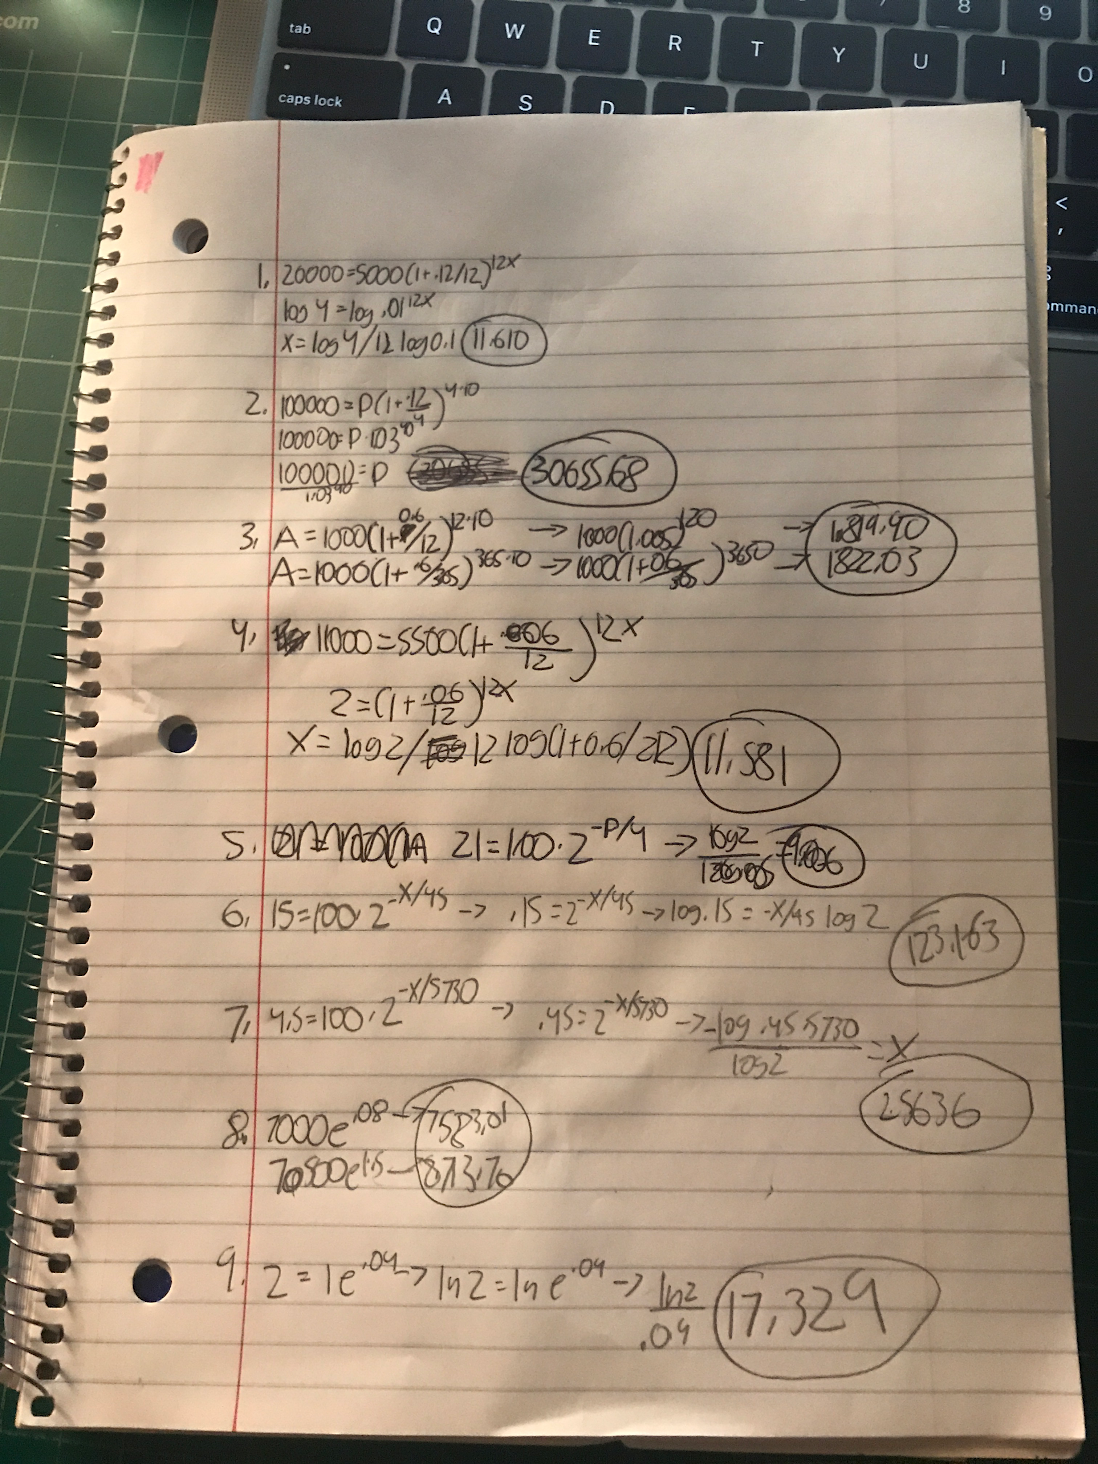 com
8 9
tab Q W E R T Y U I O
caps lock A S D F
<
,
comman
1. 20000=5000(1+.12/12)^12x
log 4=log .01^12x
x=log4/12 log0.1 11.610
2. 100000=P(1+.12/4)^4·10
100000=P·1.03^40
100000/1.03^40=P 30655.68
3. A=1000(1+0.6/12)^12·10 → 1000(1.005)^120 → 1,819.40
A=1000(1+.6/365)^365·10 → 1000(1+.06/365)^3650 → 1822.03
4. 11000=5500(1+.006/12)^12x
2=(1+.06/12)^12x
x=log2/12 log(1+0.6/12) 11.581
5. 21=100·2^-P/4 → log2
6. 15=100·2^-x/45 → .15=2^-x/45 → log.15=-x/45 log2 123.163
7. 45=100·2^-x/5730 → .45=2^-x/5730 → -log.45·5730/log2=x
25636
8. 7000e^.08 → 7583.01
70800e^1.5 → 8713.76
9. 2=1e^.04 → ln2=ln e^.04 → ln2/.04 17.329